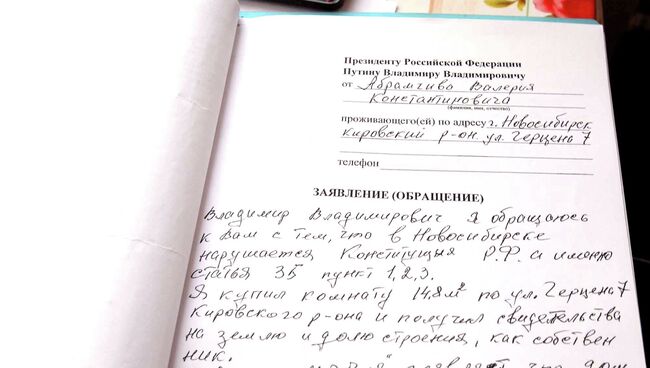 Президенту Российской Федерации
Путину Владимиру Владимировичу
от Абрамчива Валерия
Константиновича
(фамилия, имя, отчество)
проживающего(ей) по адресу г. Новосибирск
Кировский р-он. ул. Герцена 7
телефон
ЗАЯВЛЕНИЕ (ОБРАЩЕНИЕ)
Владимир Владимирович я обращаюсь
к Вам с тем, что в Новосибирске
нарушается Конституция Р.Ф. а именно
статья 35 пункт 1,2,3.
Я купил комнату 14,8м² по ул. Герцена 7
Кировского р-она и получил свидетельства
на землю и долю строения, как собствен
ник.
что дом